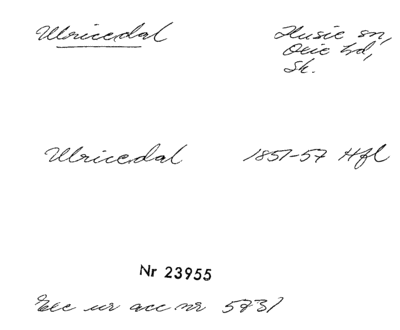 Ulricedal
Husie sn,
Oxie hd,
Sk.
Ulricedal 1851-57 Hfl
Nr 23955
Exc ur acc nr 5731